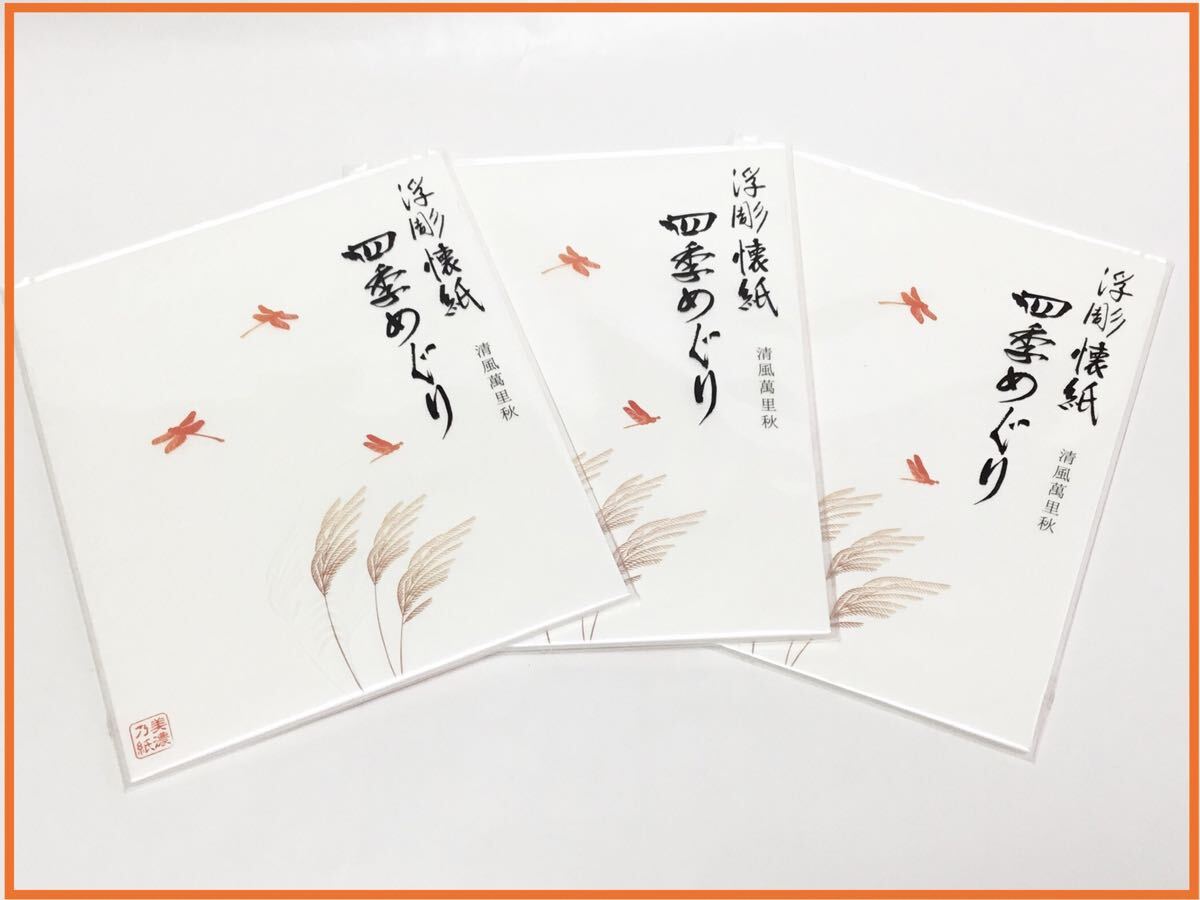 浮彫懐紙
四季めぐり
清風萬里秋
美濃
乃紙
浮彫懐紙
四季めぐり
清風萬里秋
浮彫懐紙
四季めぐり
清風萬里秋